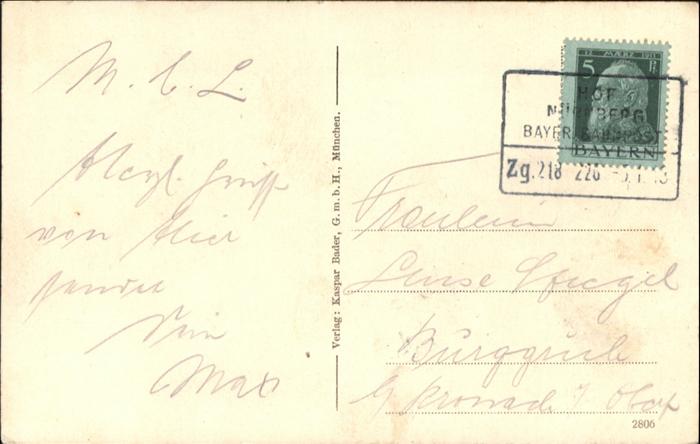 M. l. L.
Herzl. Grüße
von hier
sendet
Dein
Max
Verlag: Kaspar Bader, G. m. b. H., München.
12 MÄRZ 1911
5 Pf
BAYERN
HOF
NÜRNBERG
BAYER. BAHNPOST
Zg. 218
Fräulein
Luise Spiegel
Burggrub
b/ Kronach
2806